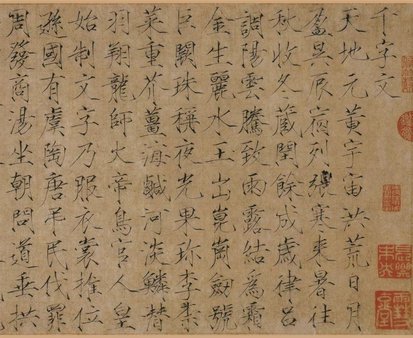 千字文
天地元黃宇宙洪荒日月
盈昃辰宿列張寒來暑往
秋收冬藏閏餘成歲律呂
調陽雲騰致雨露結爲霜
金生麗水玉出崑崗劒號
巨闕珠稱夜光果珍李柰
菜重芥薑海鹹河淡鱗潛
羽翔龍師火帝鳥官人皇
始制文字乃服衣裳推位
遜國有虞陶唐弔民伐罪
周發商湯坐朝問道垂拱